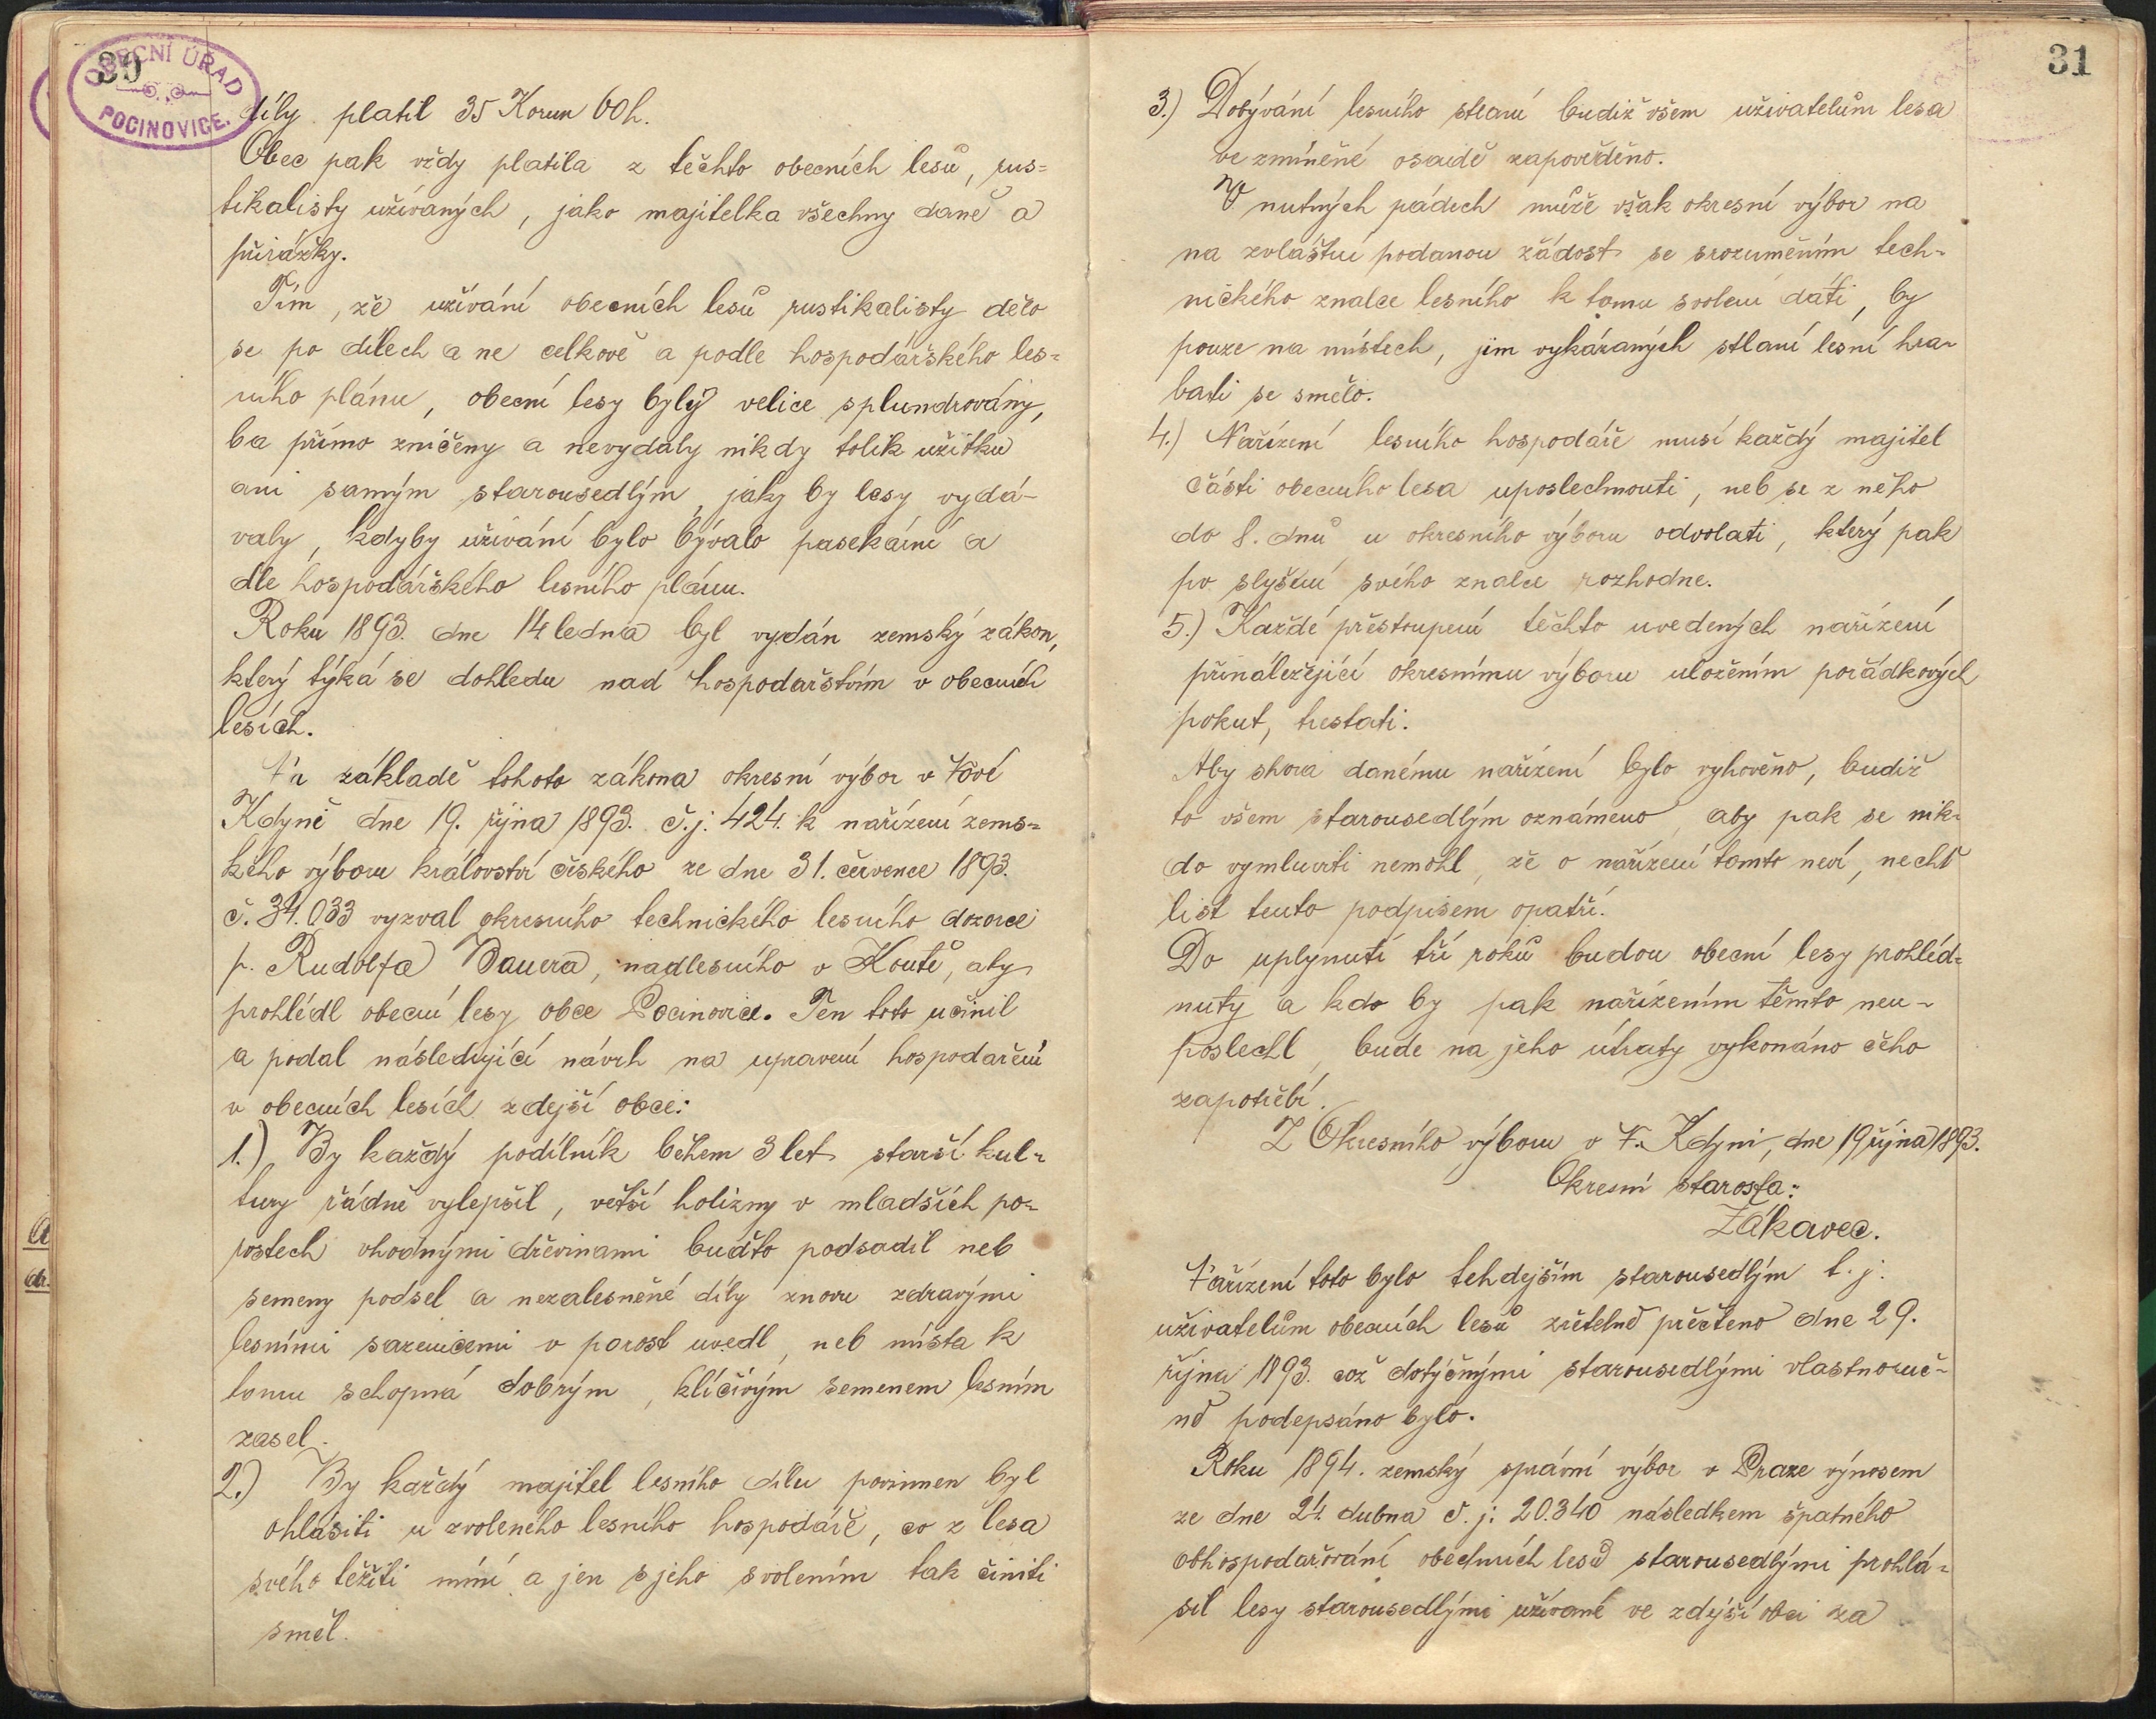 30
OBECNÍ ÚŘAD
POCINOVICE.
díly platil 35 Korun 60 h.
Obec pak vždy platila z těchto obecních lesů, rus=
tikalisty užívaných, jako majitelka všechny daně a
přirážky.
Tím, že užívání obecních lesů rustikalisty dělo
se po dílech a ne celkově a podle hospodářského les=
ního plánu, obecní lesy byly velice splundrovány,
ba přímo zničeny a nevydaly nikdy tolik užitku
ani samým starousedlým, jaky by lesy vydá-
valy, kdyby užívání bylo bývalo pasekární a
dle hospodářského lesního plánu.
Roku 1893. dne 14 ledna byl vydán zemský zákon,
který týká se dohledu nad hospodařstvím v obecních
lesích.
Na základě tohoto zákona okresní výbor v Nové
Kdyně dne 19. října 1893. č.j. 424. k nařízení zems=
kého výboru království českého ze dne 31. července 1893.
č. 34.033 vyzval okresního technického lesního dozorce
p. Rudolfa Bauera, nadlesního v Koutě, aby
prohlédl obecní lesy obce Pocinovice. Ten toto učinil
a podal následující návrh na upravení hospodaření
v obecních lesích zdejší obce:
1.) By každý podílník během 3 let starší kul-
tury řádně vylepšil, větší holizny v mladších po-
rostech vhodnými dřevinami buďto podsadil neb
semeny podsel a nezalesněné díly znovu zdravými
lesními sazenicemi v porost uvedl, neb místa k
tomu schopná dobrým, klíčivým semenem lesním
zasel.
2.) By každý majitel lesního dílu povinnen byl
ohlásiti u zvoleného lesního hospodáře, co z lesa
svého těžiti míní a jen s jeho svolením tak činiti
směl.
31
3.) Dobývání lesního stlaní budiž všem uživatelům lesa
ve zmíněné osadě zapověděno.
V nutných pádech může však okresní výbor na
na zvláštní podanou žádost se srozuměním tech-
nického znalce lesního k tomu svolení dáti, by
pouze na místech, jim vykázaných stlaní lesní hra-
bati se smělo.
4.) Nařízení lesního hospodáře musí každý majitel
části obecního lesa uposlechnouti, neb se z něho
do 8. dnů u okresního výboru odvolati, který pak
po slyšení svého znalce rozhodne.
5.) Každé přestoupení těchto uvedených nařízení
přináležející okresnímu výboru uložením pořádkových
pokut, trestati.
Aby shora danému nařízení bylo vyhověno, budiž
to všem starousedlým oznámeno, aby pak se nik-
do vymluviti nemohl, že o nařízení tomto neví, nechť
list tento podpisem opatří.
Do uplynutí tří roků budou obecní lesy prohléd=
nuty a kdo by pak nařízením těmto neu-
poslechl, bude na jeho útraty vykonáno čeho
zapotřebí.
Z Okresního výboru v N. Kdyni, dne 19 října 1893.
Okresní starosta:
Žákavec.
Nařízení toto bylo tehdejším starousedlým t. j.
uživatelům obecních lesů zřetelně přečteno dne 29.
října 1893. což dotyčnými starousedlými vlastnoruč-
ně podepsáno bylo.
Roku 1894. zemský správní výbor v Praze výnosem
ze dne 24. dubna č. j: 20.340 následkem špatného
obhospodařování obecních lesů starousedlými prohlá-
sil lesy starousedlými užívané ve zdejší obci za